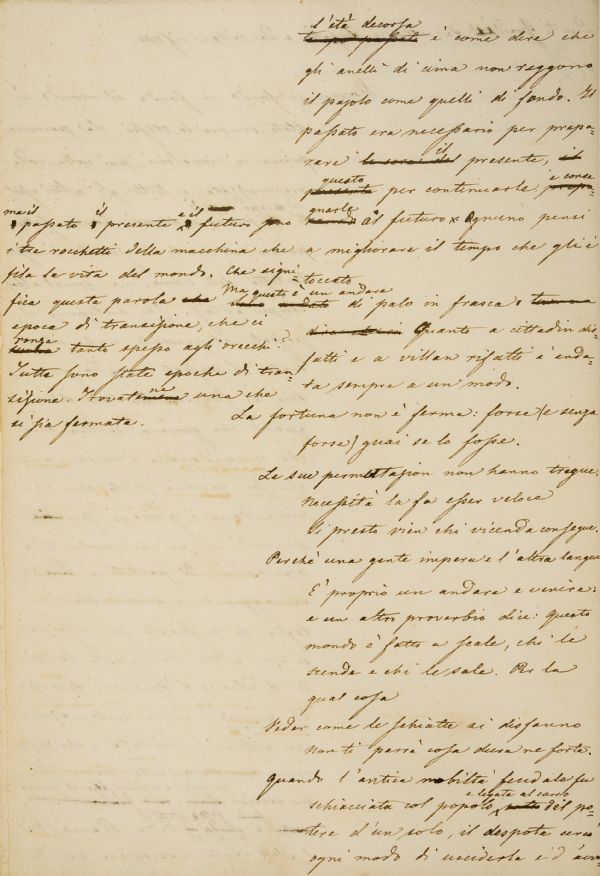 l'età decorsa
è come dire che
gli anelli di cima non reggono
il pajolo come quelli di fondo. Il
passato era necessario per prepa-
rare il presente,
questo
per continuarlo e conse
gnarlo
al futuro. Ognuno pensi
a migliorare il tempo che gli è
toccato
Ma questo è un andare
di palo in frasca.
Quanto a cittadin dis-
fatti e a villan rifatti è anda-
ta sempre a un modo.
La fortuna non è ferma: forse (e senza
forse) guai se lo fosse.
Le sue permutazion non hanno triegue.
Necessità la fa esser veloce
Sì presto vien chi vicenda consegue.
Perchè una gente impera e l'altra langue
È proprio un andare e venire:
e un altro proverbio dice: questo
mondo è fatto a scale, chi le
scende e chi le sale. Per la
qual cosa
Veder come le schiatte si disfanno
Non ti parrà cosa dura nè forte.
Quando l'antica nobiltà feudale fu
e legata al carro
schiacciata col popolo del po-
tere d'un solo, il despota cercò
ogni modo di ucciderla e d'
ma il il e il
passato presente futuro sono
i tre rocchetti della macchina che
fila la vita del mondo. Che signi-
fica questa parola
epoca di transizione, che ci
ronza
tanto spesso agli orecchi?
Tutte sono state epoche di tran-
sizione. Trovatene una che
si sia fermata.